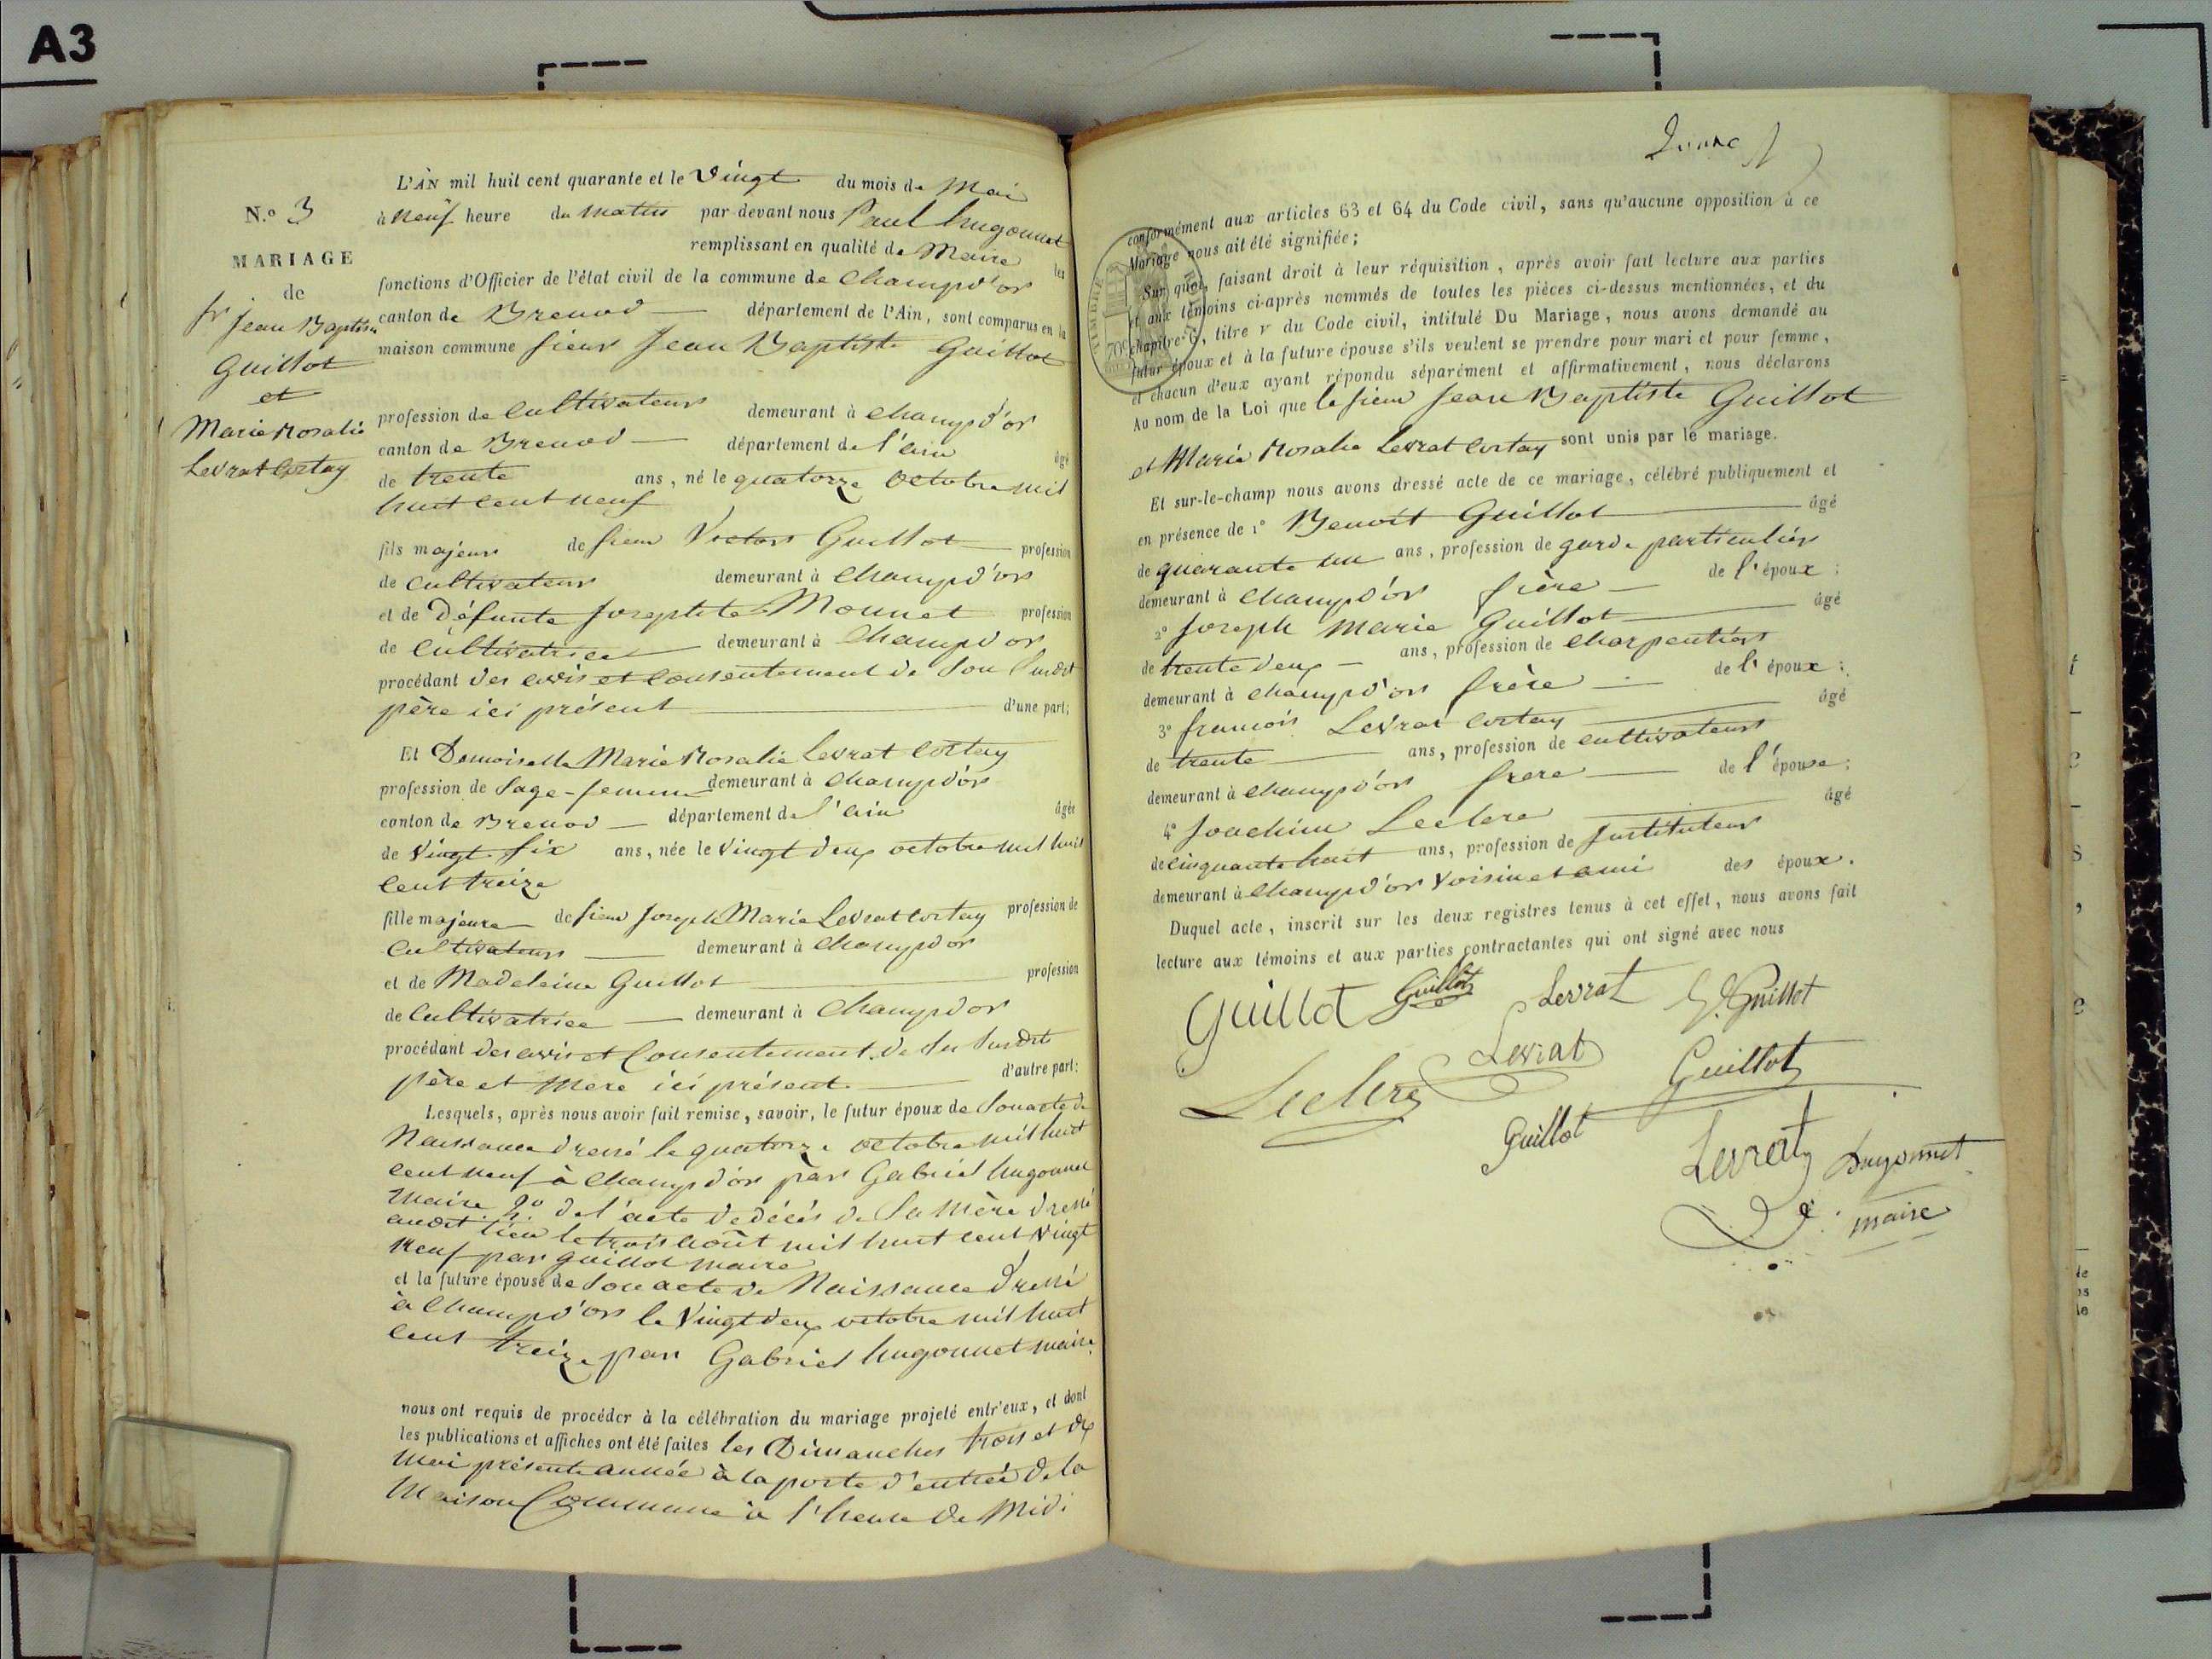 A3
N.o 3
MARIAGE
de
sr Jean Baptiste
Guillot
et
Marie Rosalie
Levrat Cortay
L'AN mil huit cent quarante et le Vingt du mois de Mai
à neuf heure du matin par-devant nous Paul hugonnet
remplissant en qualité de Maire les
fonctions d'Officier de l'état civil de la commune de Champd'or
canton de Brenod département de l'Ain, sont comparus en la
maison commune sieur Jean Baptiste Guillot
profession de Cultivateur demeurant à Champd'or
canton de Brenod département de l'ain âgé
de trente ans, né le quatorze octobre mil
huit cent neuf
fils majeur de sieur Victor Guillot profession
de cultivateur demeurant à Champd'or
et de Défunte Josephte Monnet profession
de Cultivatrice demeurant à Champd'or
procédant des avis et consentement de son susdit
père ici présent d'une part;
Et Demoiselle Marie Rosalie Levrat Cortay
profession de Sage-femme demeurant à Champd'or
canton de Brenod département de l'ain âgée
de vingt six ans, née le Vingt deux octobre mil huit
cent treize
fille majeure de sieur Joseph Marie Levrat Cortay profession de
Cultivateur demeurant à Champd'or
et de Madeleine Guillot profession
de Cultivatrice demeurant à Champd'or
procédant des avis et Consentement de ses susdits
père et mere ici présent d'autre part;
Lesquels, après nous avoir fait remise, savoir, le futur époux de Son acte de
Naissance dressé le quatorze octobre mil huit
cent neuf à Champd'or par Gabriel hugonnet
maire 2o de l'acte de décés de Sa Mère dressé
audit lieu le trois août mil huit cent vingt
neuf par guillot maire
et la future épouse de Son acte de Naissance dressé
à Champd'or le Vingt deux octobre mil huit
cent treize par Gabriel hugonnet maire
nous ont requis de procéder à la célébration du mariage projeté entr'eux, et dont
les publications et affiches ont été faites les Dimanches trois et dix
Mai présente année à la porte d'entrée de la
Maison Commune à l'heure de Midi
conformément aux articles 63 et 64 du Code civil, sans qu'aucune opposition à ce
Mariage nous ait été signifiée;
Sur quoi, faisant droit à leur réquisition, après avoir fait lecture aux parties
et aux témoins ci-après nommés de toutes les pièces ci-dessus mentionnées, et du
chapitre 6, titre v du Code civil, intitulé Du Mariage, nous avons demandé au
futur époux et à la future épouse s'ils veulent se prendre pour mari et pour femme,
et chacun d'eux ayant répondu séparément et affirmativement, nous déclarons
Au nom de la Loi que le sieur Jean Baptiste Guillot
et Marie Rosalie Levrat Cortay sont unis par le mariage.
Et sur-le-champ nous avons dressé acte de ce mariage, célébré publiquement et
en présence de 1o Benoit Guillot âgé
de quarante un ans, profession de garde particulier
demeurant à Champd'or frère de l'époux;
2o Joseph Marie Guillot âgé
de trente deux ans, profession de Charpentier
demeurant à Champd'or frère de l'époux;
3o francois Levrat Cortay âgé
de trente ans, profession de cultivateur
demeurant à Champd'or frere de l'épouse;
4o Joachim Leclerc âgé
de cinquante huit ans, profession de Instituteur
demeurant à Champd'or Voisin et ami des époux.
Duquel acte, inscrit sur les deux registres tenus à cet effet, nous avons fait
lecture aux témoins et aux parties contractantes qui ont signé avec nous
Guillot Guillot Levrat Guillot
Leclerc Levrat Guillot
Guillot Levrat hugonnet
maire
TIMBRE
70c